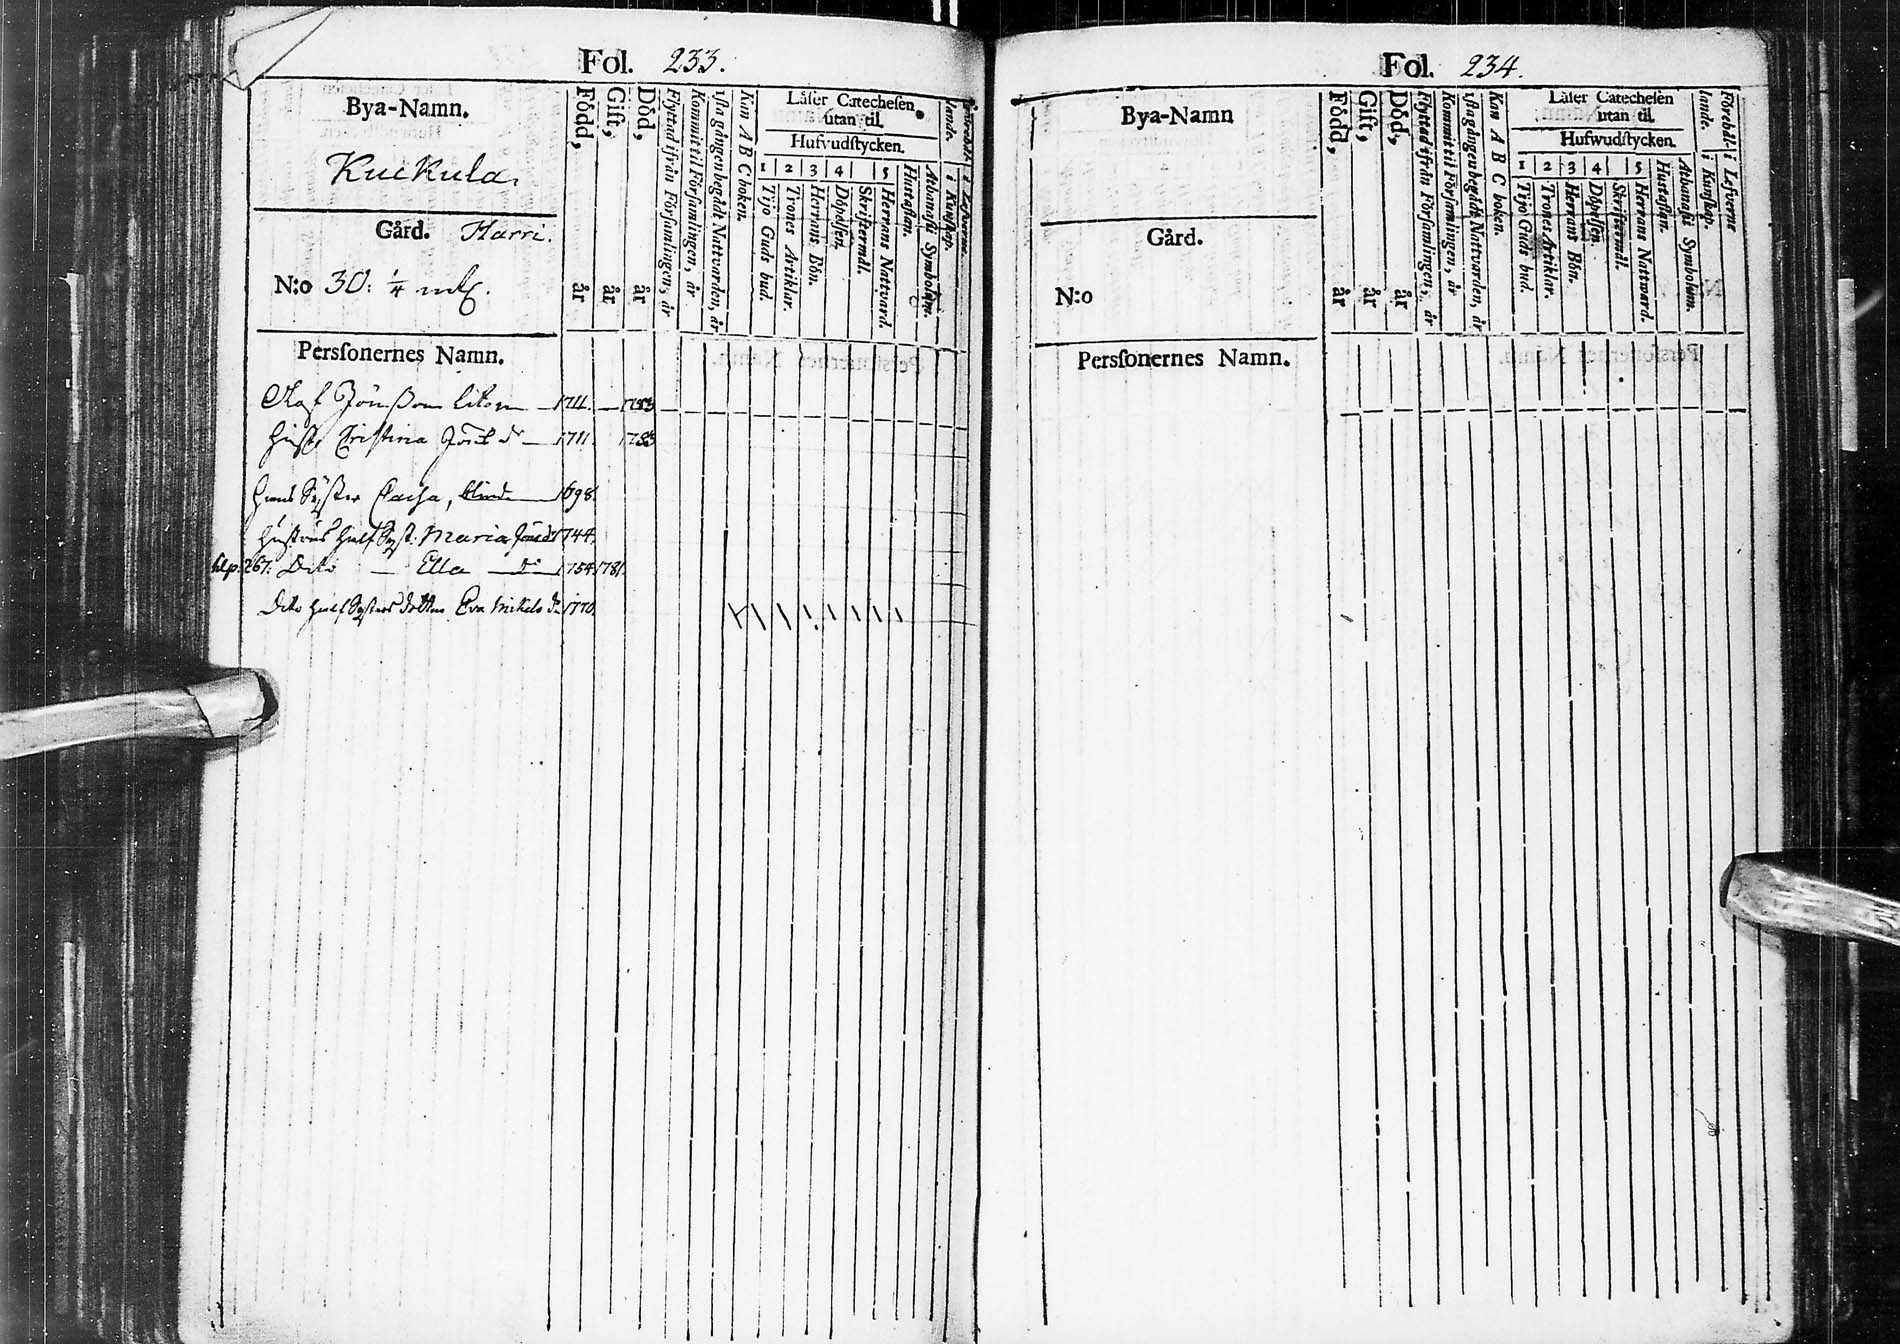 Fol. 233.
Bya-Namn.
Kuckula.
Gård. Harri.
N:o 30: 1/4 mtl.
Född, år
Gift, år
Död, år
Flyttad ifrån Församlingen, år
Kommit til Församlingen, år
1sta gången begådt Nattvarden, år
Kan A B C boken.
Låser Catechesen
utan til.
Hufvudstycken.
1 2 3 4 5
Tijo Guds bud.
Trones Artiklar.
Herrans Bön.
Döpelsen.
Skriftermål.
Herrans Nattvard.
Hustaflan.
Athanasii Symbolum.
i Kunskap.
i Lefverne
Persſonernes Namn.
Jönsson 1711. 1783
Hust. Cristina 1711. 1783
Hans Syster Caisa, blind 1698.
Hustrus half Syst. Maria Jönsdr 1744.
267: Dito — Ella — dr 1754 1781.
Dito half Systers dotter Eva Mickels dr 1770.
Fol. 234.
Bya-Namn
Gård.
N:o
Född, år
Gift, år
Död, år
Flyttad ifrån Församlingen, år
Kommit til Församlingen, år
1sta gången begådt Nattvarden, år
Kan A B C boken.
Låser Catechesen
utan til.
Hufwudstycken.
1 2 3 4 5
Tijo Guds bud.
Trones Artiklar.
Herrans Bön.
Döpelsen.
Skriftermål.
Herrans Nattward.
Hustaflan.
Athanasii Symbolum.
Förehållande.
i Kunskap.
i Lefverne
Persſonernes Namn.